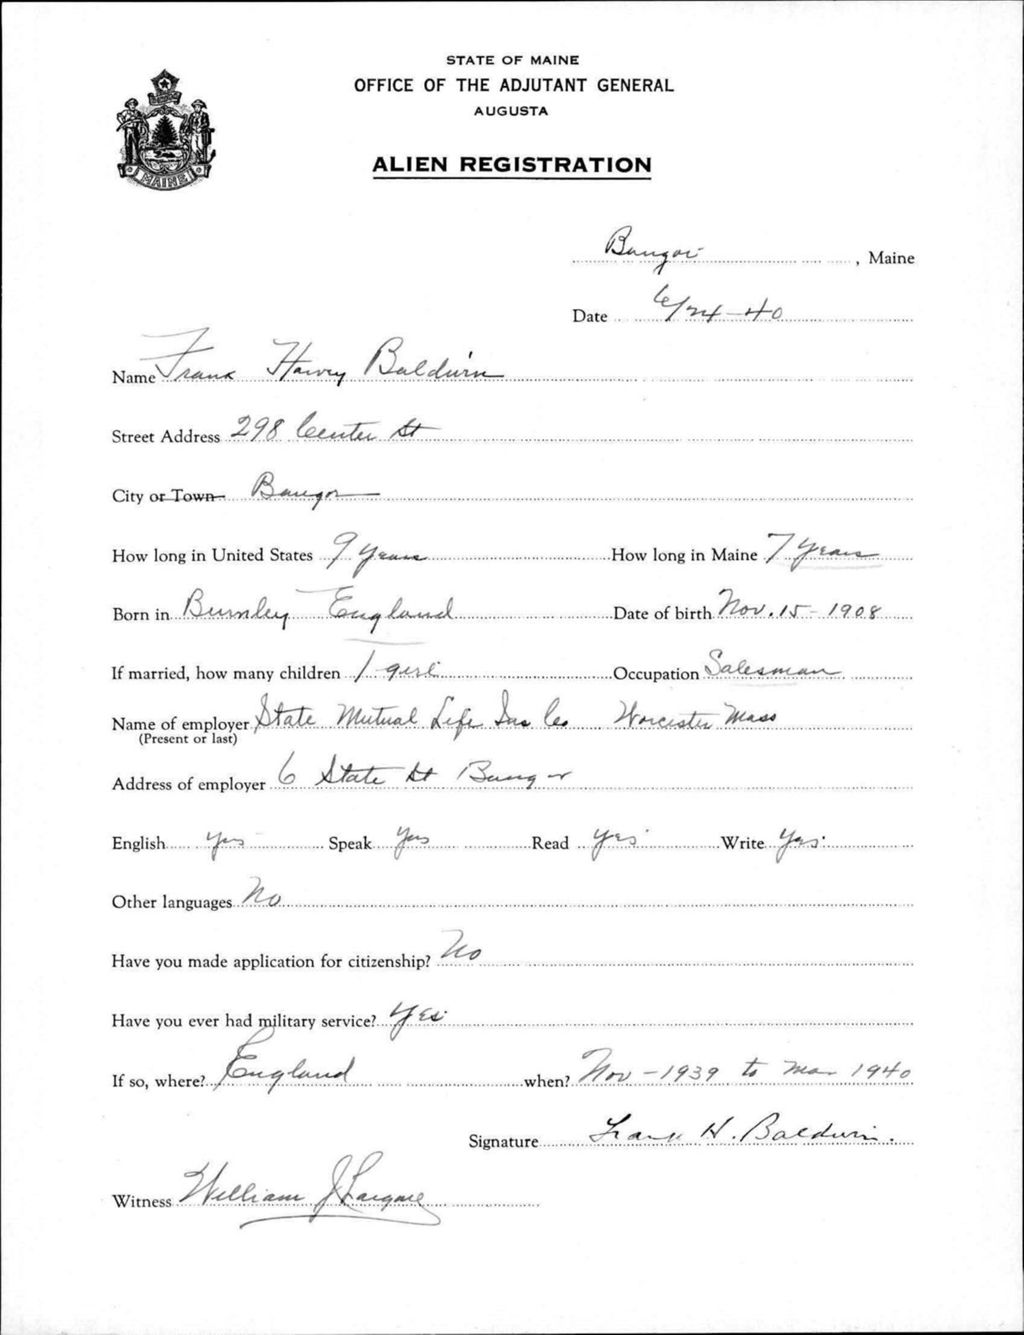 STATE OF MAINE
OFFICE OF THE ADJUTANT GENERAL
AUGUSTA
MAINE
ALIEN REGISTRATION
Bangor, Maine
Date 6/24-40
Name Frank Harvey Baldwin
Street Address 298 Center St
City or Town Bangor
How long in United States 9 years How long in Maine 7 years
Born in Burnley England Date of birth Nov. 15-1908
If married, how many children 1 girl Occupation Salesman
Name of employer State Mutual Life Ins Co Worcester Mass
(Present or last)
Address of employer 6 State St Bangor
English yes Speak yes Read yes Write yes
Other languages No
Have you made application for citizenship? No
Have you ever had military service? Yes
If so, where? England when? Nov-1939 to Mar 1940
Signature Frank H. Baldwin.
Witness William J